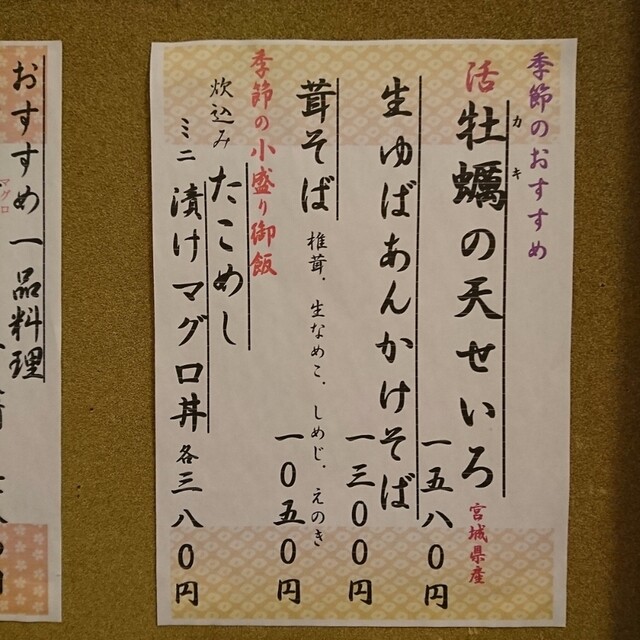 季節のおすすめ
活牡蠣の天せいろ 宮城県産
カキ
一五八〇円
生ゆばあんかけそば
一三〇〇円
茸そば 椎茸、生なめこ、しめじ、えのき
一〇五〇円
季節の小盛り御飯
炊込み たこめし
ミニ 漬けマグロ丼 各三八〇円
おすすめ一品料理
マグロ